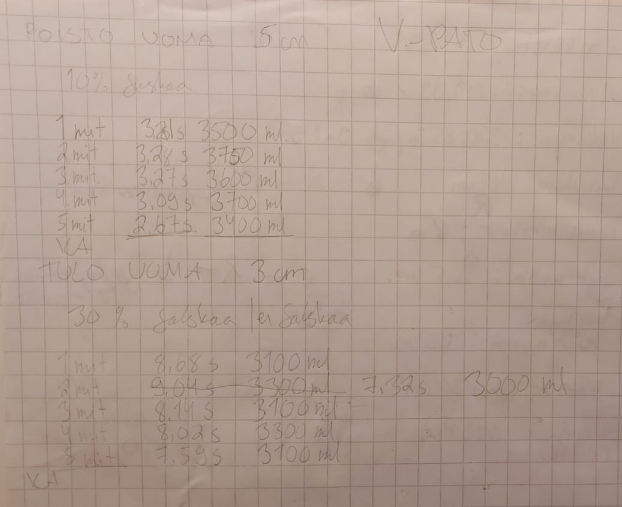 POISTO UOMA 5 cm V-PATO
10%
1 mit 3.81s 3500 ml
2 mit 3.28 s 3750 ml
3 mit 3.27 s 3600 ml
4 mit 3.09 s 3700 ml
5 mit 2.67 s 3400 ml
KA
TULO UOMA 3 cm
30 %
1 mit 8.68 s 3100 ml
2 mit 9.04 s 3300 ml 7.32s 3000 ml
3 mit 8.14 s 3100 ml
4 mit 8.02 s 3300 ml
5 mit 7.59 s 3100 ml
KA